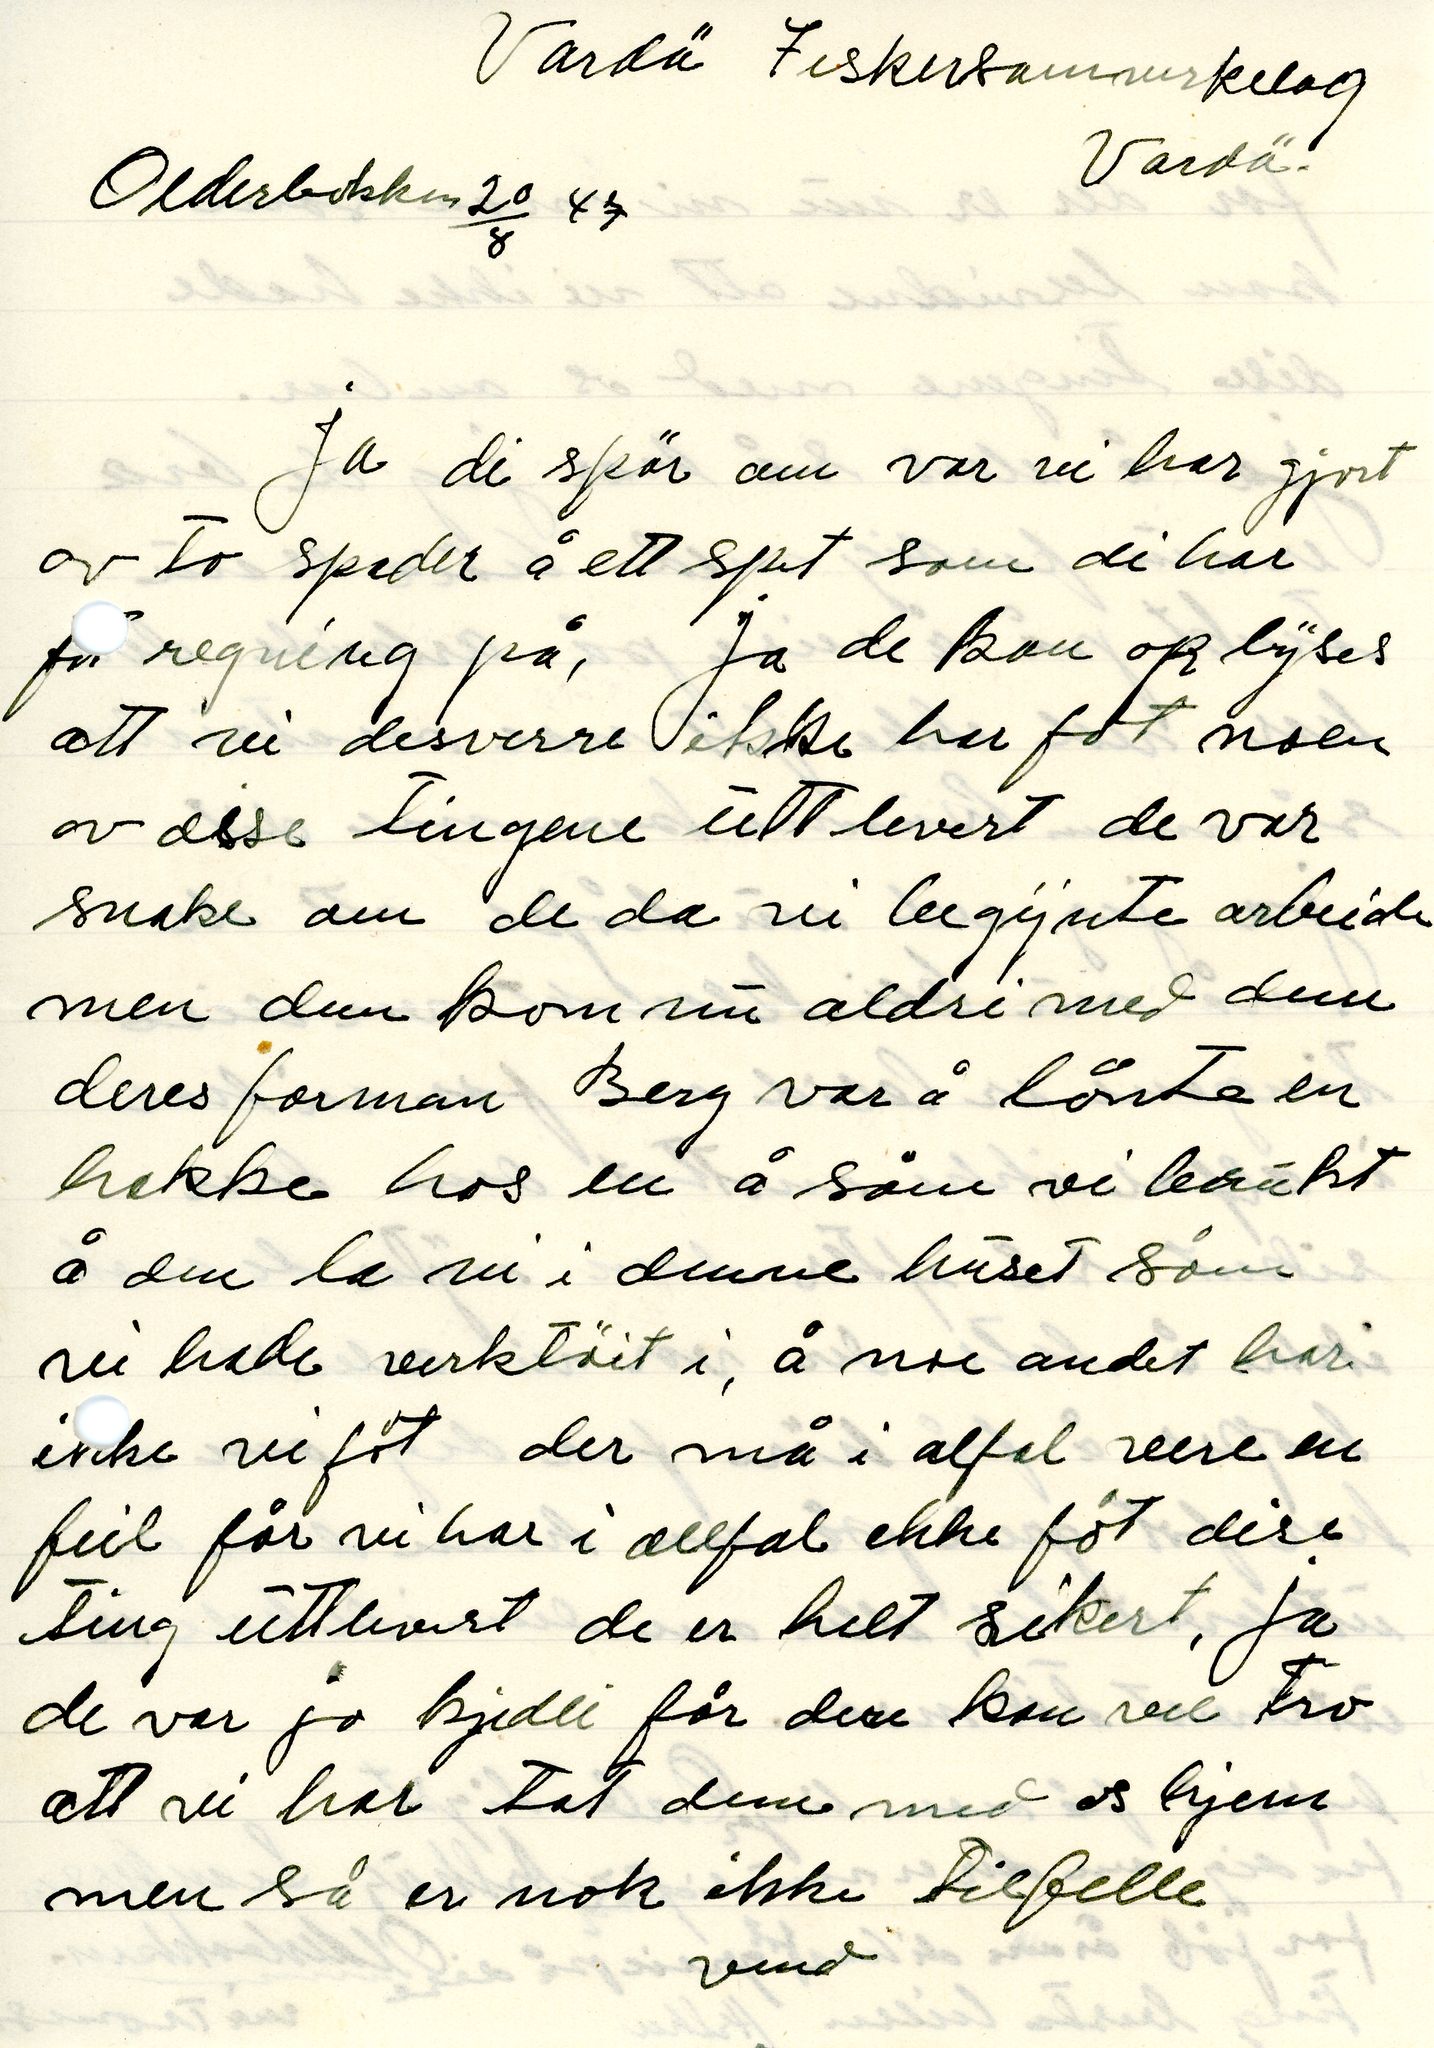 Vardö Fiskersamverkelag
Vardö.
Olderbakken 20/8 47
Ja di spör om var vi har gjort
av to spader å ett spet som di har
på regning på, Ja de kan oplyses
att vi desverre ikke har fåt noen
av disse tingene uttlevert de var
snake om de da vi begynte arbeide
men den kom nu aldri med dem
deres forman Berg var å lönte en
hakke hos en å som vi brukt
å den la vi i denne huset som
vi hade verktöit i, å noe andet har
ikke vi fåt der må i alfal vere en
feil får vi har i allfal ikke fåt dise
ting uttlevert de er helt sikert, ja
de var jo kjedli får dere kan vel tro
att vi har tat dem med os hjem
men så er nok ikke tilfelle
vend